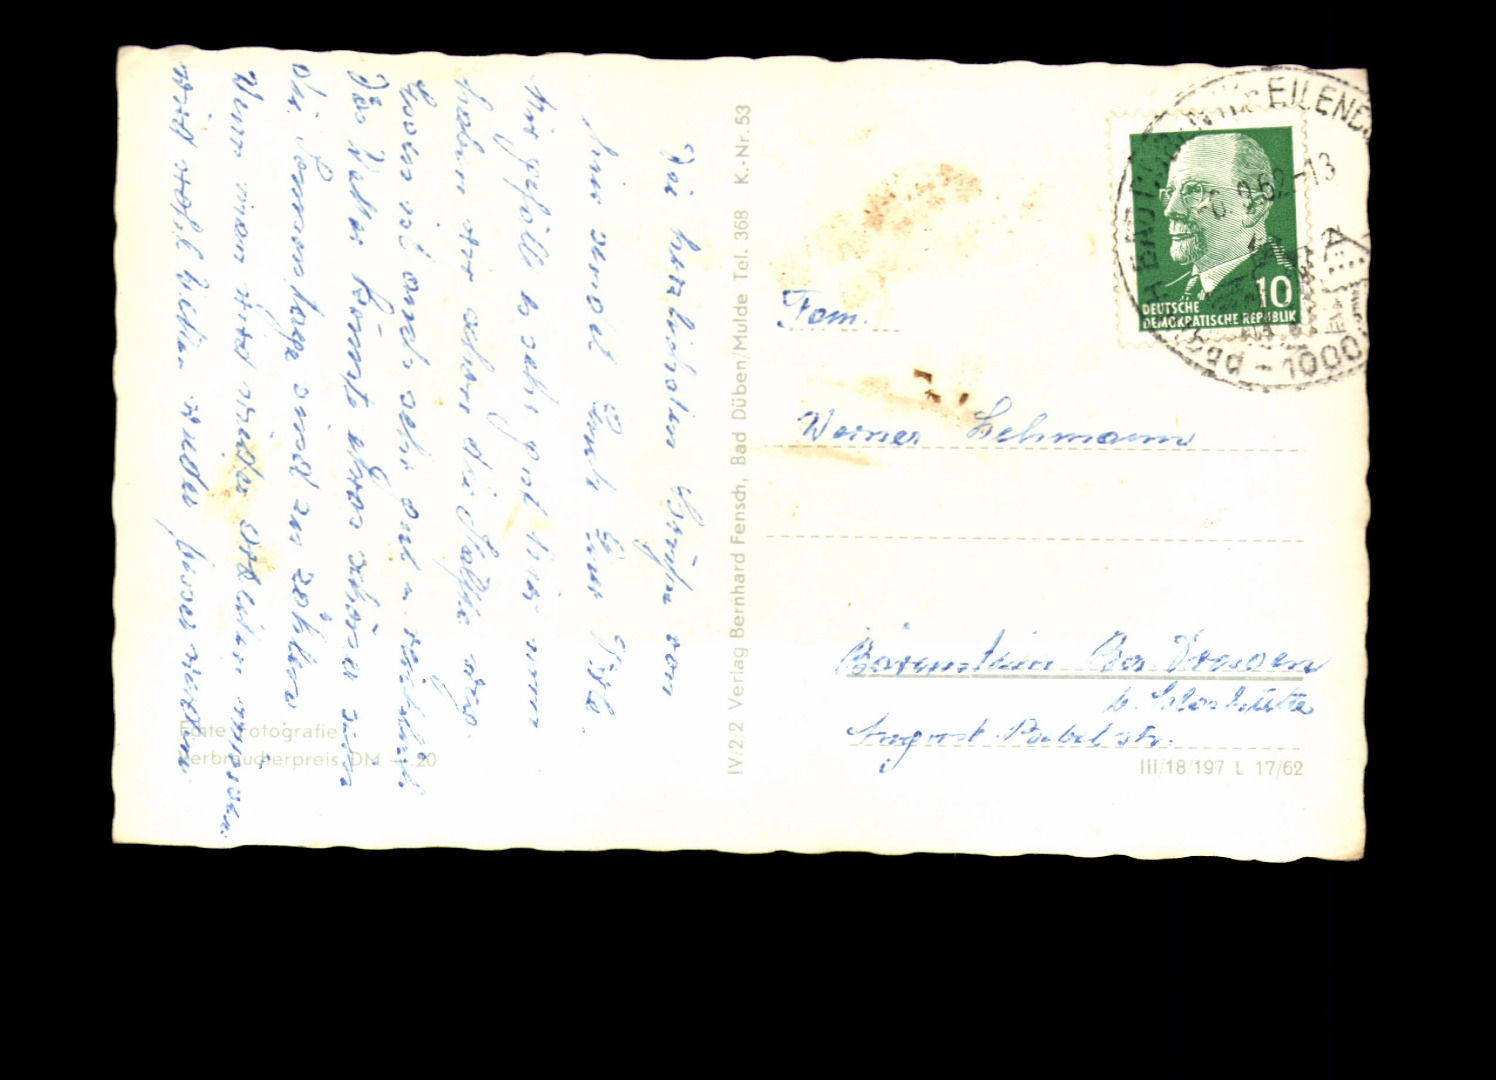 Die herzlichsten Grüße von
hier sendet Euch Eure
Mir gefällt es sehr gut hier nun
haben wir schon die Hälfte weg.
Essen ist auch sehr gut u. reichlich
Das Wetter könnte etwas schöner sein
die Sonnentage sind zu zählen
Wenn man wird wieder arbeiten müssen
wird wohl Wetter wieder besser werden.
Echte Fotografie
Verbraucherpreis DM -.20
IV/2/2 Verlag Bernhard Fensch, Bad Düben/Mulde Tel. 368 K.-Nr. 53
EILENB
-6.9.62-13
1000
10
DEUTSCHE
DEMOKRATISCHE REPUBLIK
Fam.
Werner Lehmann
Bärenstein Bez. Dresden
b. Glashütte
August-Bebel str.
III/18/197 L 17/62